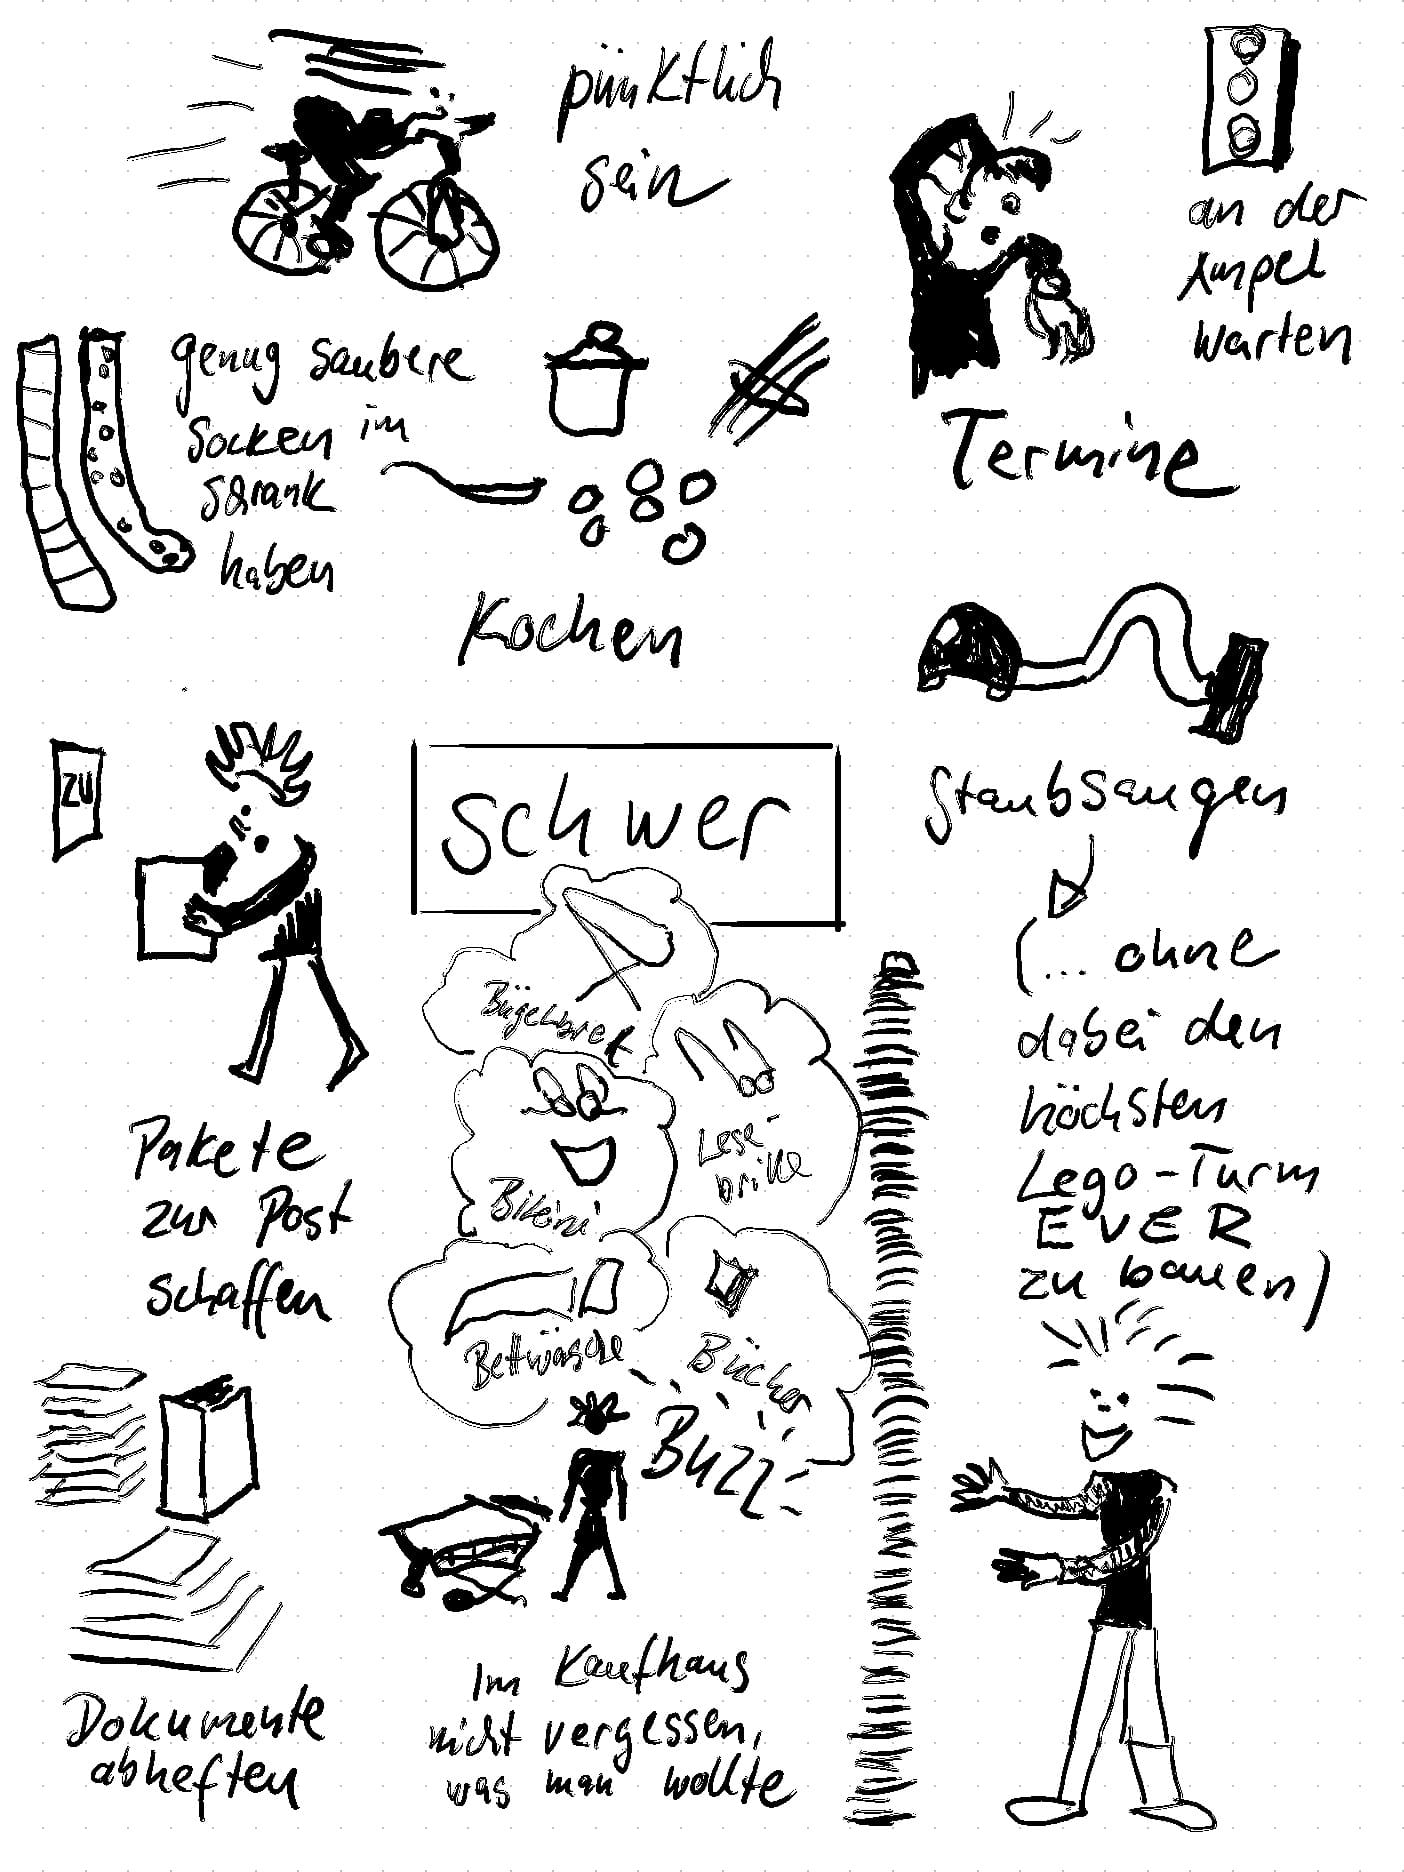 pünktlich
sein
an der
Ampel
warten
genug saubere
Socken im
Schrank
haben
Termine
Kochen
Staubsaugen
(... ohne
dabei den
höchsten
Lego-Turm
EVER
zu bauen)
ZU
Pakete
zur Post
schaffen
schwer
Bügelbrett
Lese-
brille
Bikini
Bettwäsche
Bücher
Buzz
Dokumente
abheften
Im Kaufhaus
nicht vergessen,
was man wollte